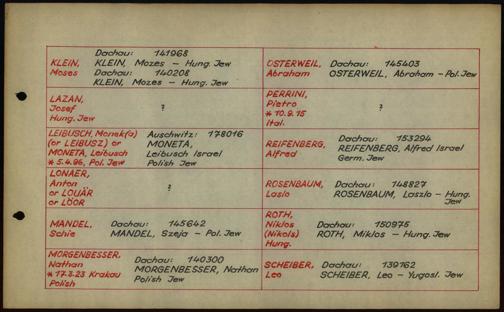 KLEIN, Moses
Dachau: 141968
KLEIN, Mozes – Hung. Jew
Dachau: 140208
KLEIN, Mozes – Hung. Jew
LAZAN,
Josef
Hung. Jew
?
LEIBUSCH, Monek(a)
(or LEIBUSZ) or
MONETA, Leibusch
* 5.4.96, Pol. Jew
Auschwitz: 178016
MONETA,
Leibusch Israel
Polish Jew
LONAER,
Anton
or LOUÄR
or LÖOR
?
MANDEL,
Schie
Dachau: 145642
MANDEL, Szeja – Pol. Jew
MORGENBESSER,
Nathan
* 17.3.23 Krakau
Polish
Dachau: 140300
MORGENBESSER, Nathan
Polish Jew
OSTERWEIL,
Abraham
Dachau: 145403
OSTERWEIL, Abraham – Pol. Jew
PERRINI,
Pietro
* 10.9.15
Ital.
?
REIFENBERG,
Alfred
Dachau: 153294
REIFENBERG, Alfred Israel
Germ. Jew
ROSENBAUM,
Laslo
Dachau: 148827
ROSENBAUM, Laszlo – Hung.
Jew
ROTH,
Niklos
(Nikols)
Hung.
Dachau: 150975
ROTH, Miklos – Hung. Jew
SCHEIBER,
Leo
Dachau: 139162
SCHEIBER, Leo – Yugosl. Jew